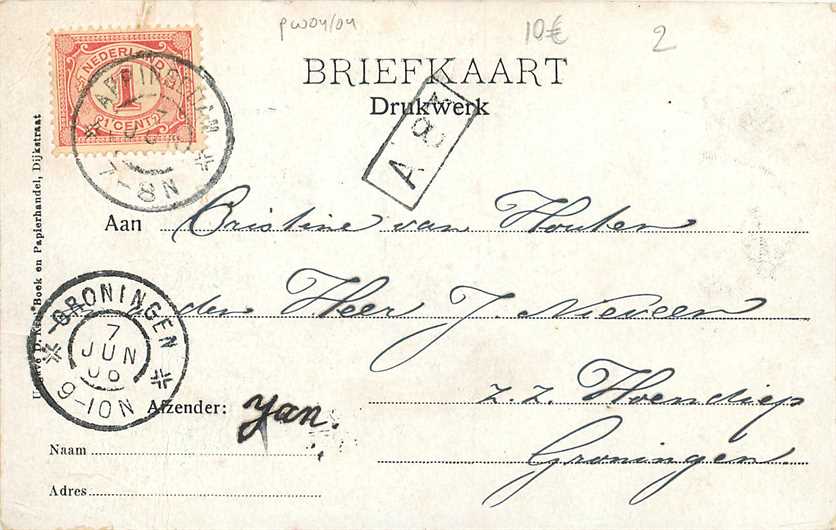 pw04/04
10€
2
NEDERLAND
1
CENT
APPINGEDAM
7-8N
BRIEFKAART
Drukwerk
A 8
Aan Cristine van Houten
den Heer J. Nieveen
z. z. Hoendiep
Groningen
GRONINGEN
7
JUN
06
9-10N
Afzender: Jan.
Naam
Adres
Boek en Papierhandel, Dijkstraat